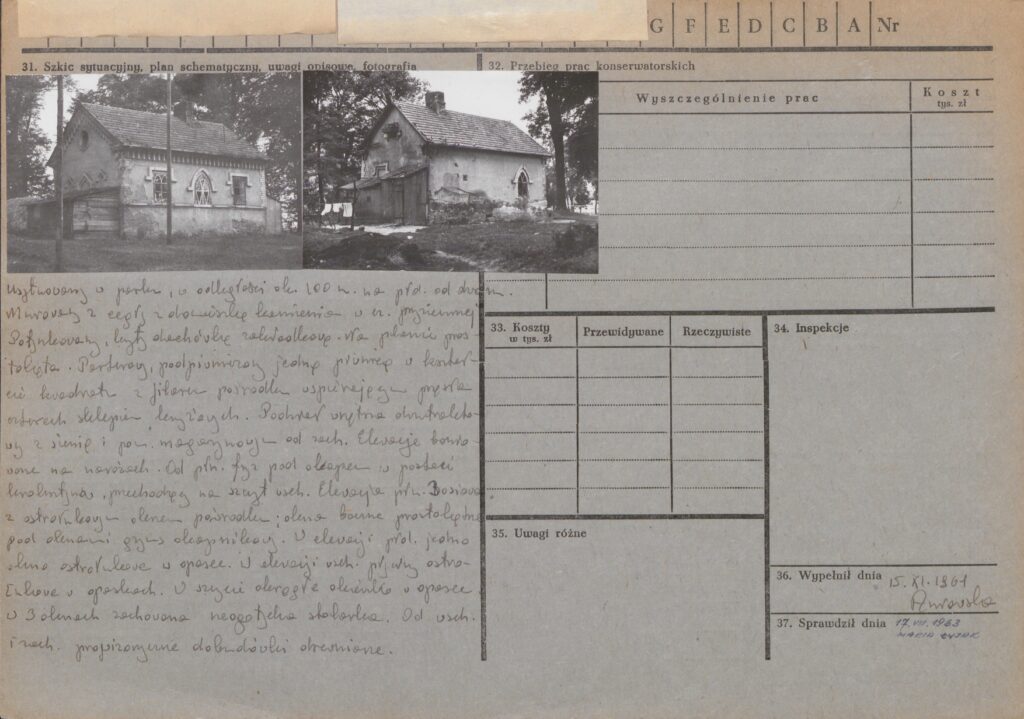 G F E D C B A Nr
31. Szkic sytuacyjny, plan schematyczny, uwagi opisowe, fotografia
32. Przebieg prac konserwatorskich
Wyszczególnienie prac
Koszt
tys. zł
Usytuowany w parku, w odległości ok. 100 m. na płd. od dworu.
Murowany z cegły z domieszką kamienia w cz. przyziemnej
Potynkowany, kryty dachówką zakładkową. Na planie pros-
tokąta. Parterowy, podpiwniczony jedną piwnicą o kształ-
cie kwadratu z filarem pośrodku wspierającym przęsła
czterech sklepień krzyżowych. Podział wnętrza dwutrakto-
wy z sienią i pom. magazynowym od zach. Elewacje bonio-
wane na narożach. Od płn. fryz pod okapem w postaci
, przechodzący na szczyt wsch. Elewacja płn. 3 osiowa
z ostrołukowym oknem pośrodku; okna boczne prostokątne
pod oknami gzyms okapnikowy. W elewacji płd. jedno
okno ostrołukowe w opasce. W elewacji wsch. ostro-
łukowe w opaskach. W szczycie okrągłe okienko w opasce
w 3 oknach zachowana neogotycka stolarka. Od wsch.
i zach. prowizoryczne dobudówki drewniane.
33. Koszty
w tys. zł
Przewidywane
Rzeczywiste
34. Inspekcje
35. Uwagi różne
36. Wypełnił dnia 15. XI. 1961
37. Sprawdził dnia 17. VII. 1963